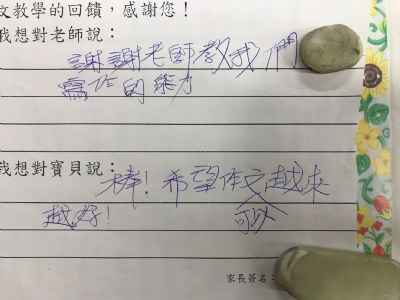 文教學的回饋，感謝您！
我想對老師說：
謝謝老師教我們
寫作的力
我想對寶貝說：
棒！希望作文越來
越好！可以
家長簽名：